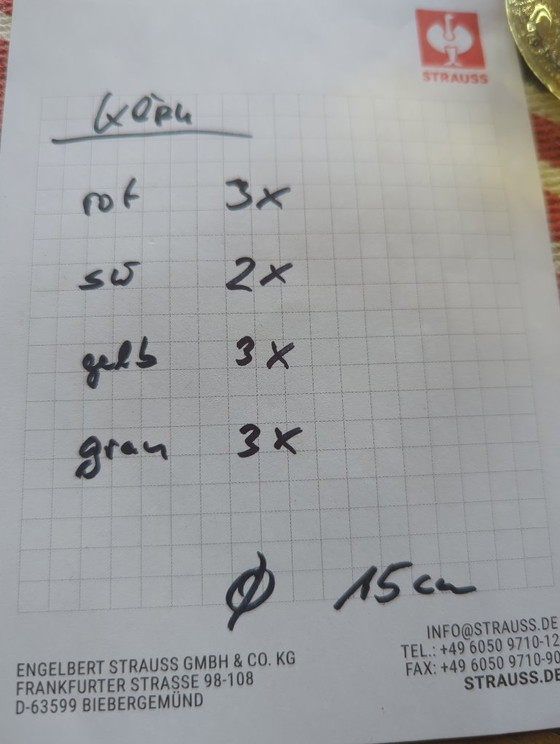 STRAUSS
rot 3x
sw 2x
gelb 3x
grau 3x
Ø 15cm
ENGELBERT STRAUSS GMBH & CO. KG
FRANKFURTER STRASSE 98-108
D-63599 BIEBERGEMÜND
INFO@STRAUSS.DE
TEL.: +49 6050 9710-12
FAX: +49 6050 9710-90
STRAUSS.DE